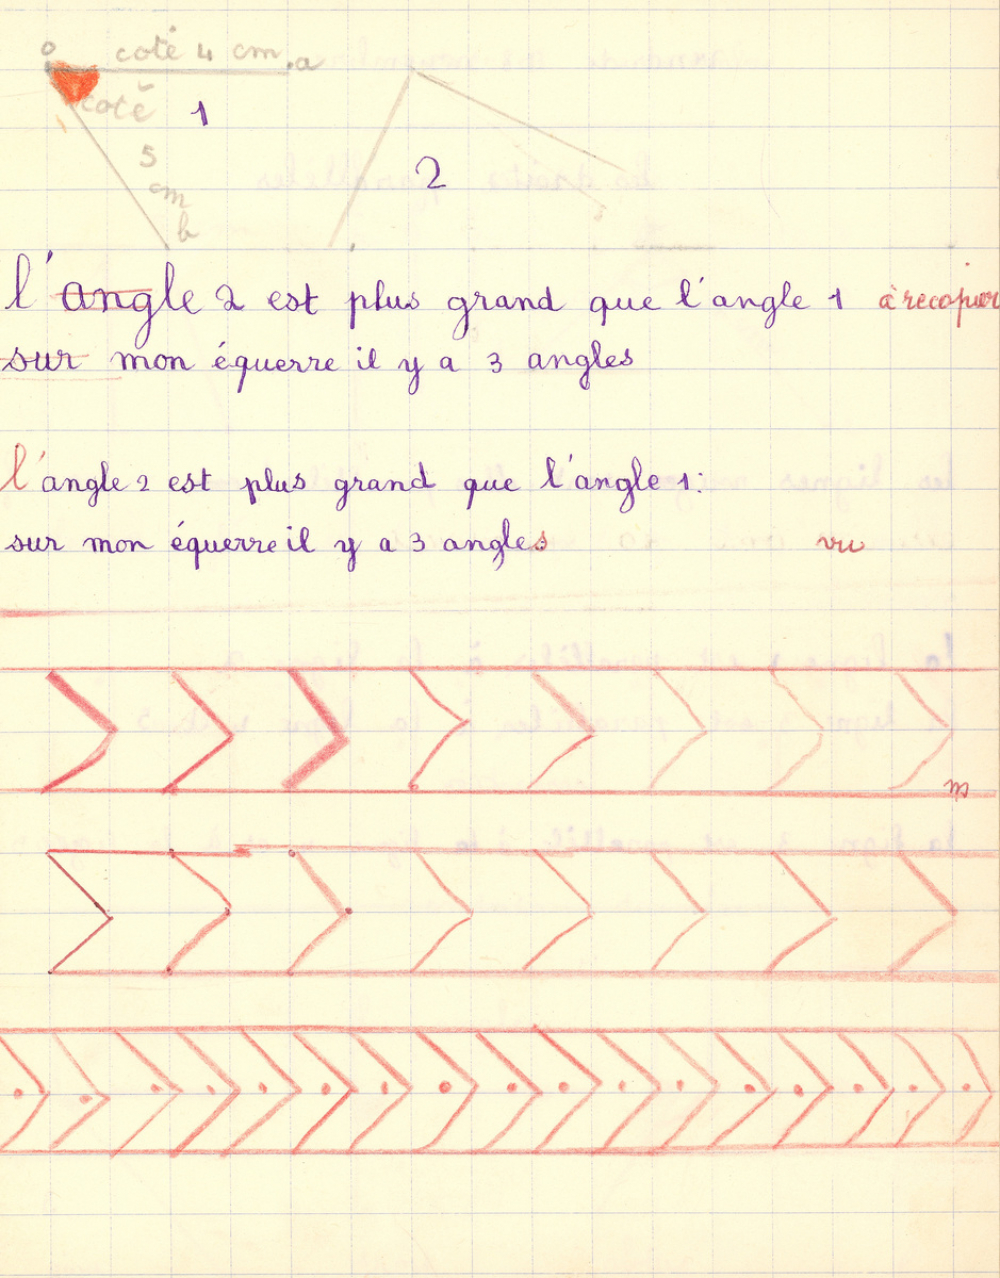 o coté 4 cm .a
coté 1
5
cm
b
2
l'angle 2 est plus grand que l'angle 1 à recopier
sur mon équerre il y a 3 angles
l'angle 2 est plus grand que l'angle 1:
sur mon équerre il y a 3 angles vu